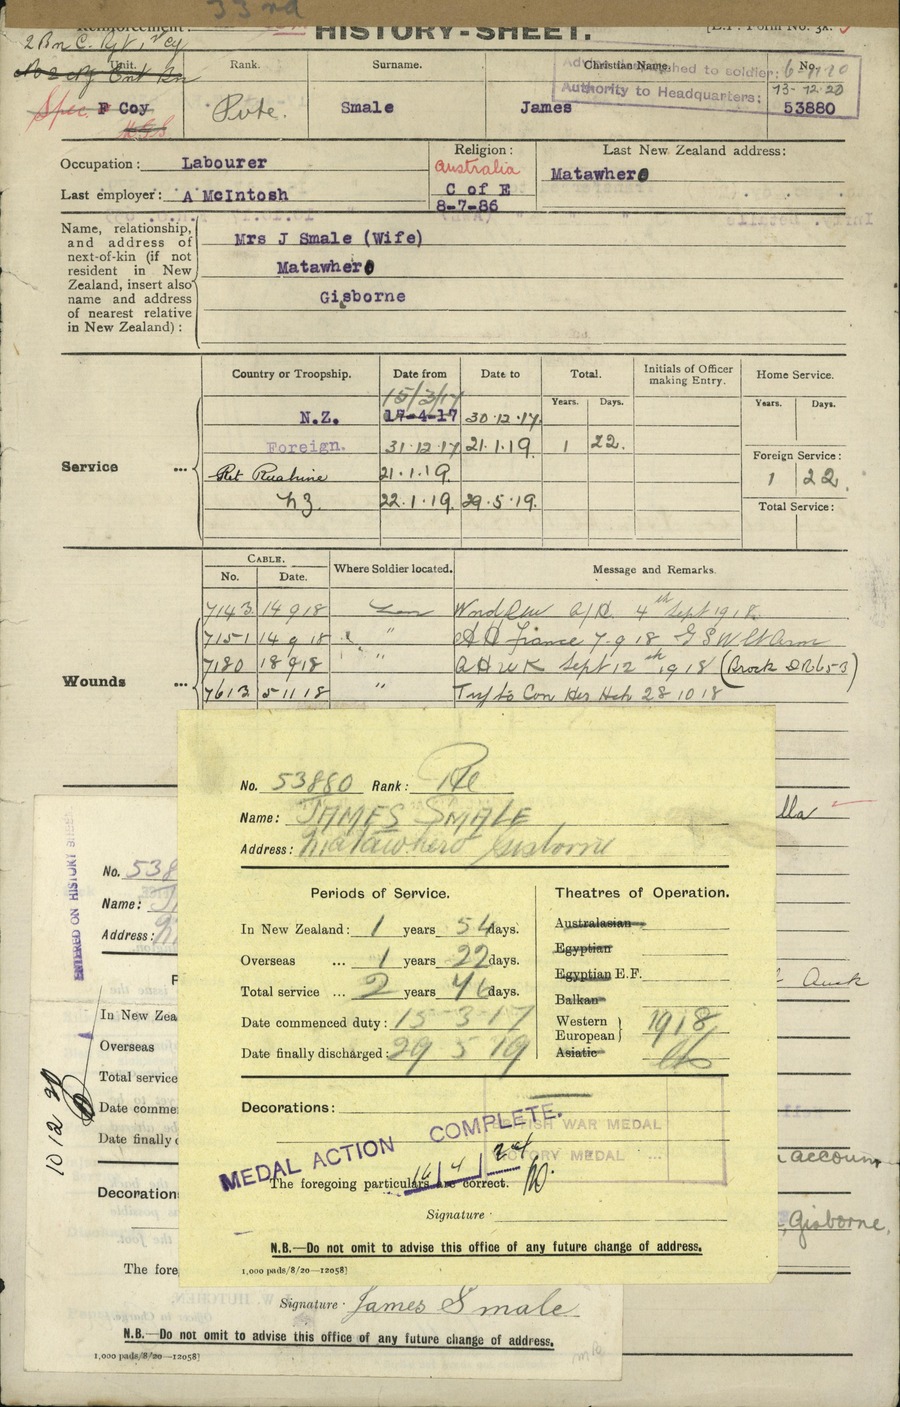 33rd
Reinforcement:
HISTORY-SHEET.
[E.F. Form No. 3x.
2 Bn C. Rgt, 2 Cy
Unit.
Rank.
Surname.
Christian Name.
No.
to soldier; 6-11-20
Authority to Headquarters; 13-12-20
Spec. F Coy
Pvte.
Smale
James
53880
Occupation: Labourer
Religion:
Australia
C of E
8-7-86
Last New Zealand address:
Matawhero
Last employer: A McIntosh
Name, relationship,
and address of
next-of-kin (if not
resident in New
Zealand, insert also
name and address
of nearest relative
in New Zealand):
Mrs J Smale (Wife)
Matawhero
Gisborne
Country or Troopship.
Date from
Date to
Total.
Initials of Officer
making Entry.
Home Service.
Years.
Days.
Years.
Days.
15/3/17
N.Z. 17-4-17 30.12.17
Foreign. 31.12.17 21.1.19. 1 22.
Foreign Service:
1 22.
Service ...
Ret Ruahine 21.1.19.
NZ. 22.1.19. 29.5.19.
Total Service:
Cable.
No.
Date.
Where Soldier located.
Message and Remarks.
7143 14 9 18 4th Sept 1918.
7151 14 9 18 " France 7.9.18 G S W Lt Arm
7180 18 9 18 " Sept 12th 1918 (Brock DR653)
Wounds ...
7613 5 11 18 " Tsf to Con 28 10 18
No. 53880 Rank: Pte
Name: JAMES SMALE
Address: Matawhero Gisborne
Periods of Service.
Theatres of Operation.
In New Zealand: 1 years 54 days.
Australasian
Overseas ... 1 years 22 days.
Egyptian
Total service ... 2 years 76 days.
Egyptian E.F.
Balkan
Date commenced duty: 15-3-17
Western
European} 1918
Date finally discharged: 29 5 19
Asiatic
Decorations:
BRITISH WAR MEDAL
VICTORY MEDAL ...
MEDAL ACTION COMPLETE.
The foregoing particulars are correct.
Signature
N.B.—Do not omit to advise this office of any future change of address.
1,000 pads/8/20—12058]
ENTERED ON HISTORY SHEET
No. 538
Name:
Address:
In New Zea
Overseas
Total service
Date comme
Date finally
Decoration
The fore
10 12 20
lla
Auck
account
Gisborne.
Signature James Smale
N.B.—Do not omit to advise this office of any future change of address.
1,000 pads/8/20—12058]